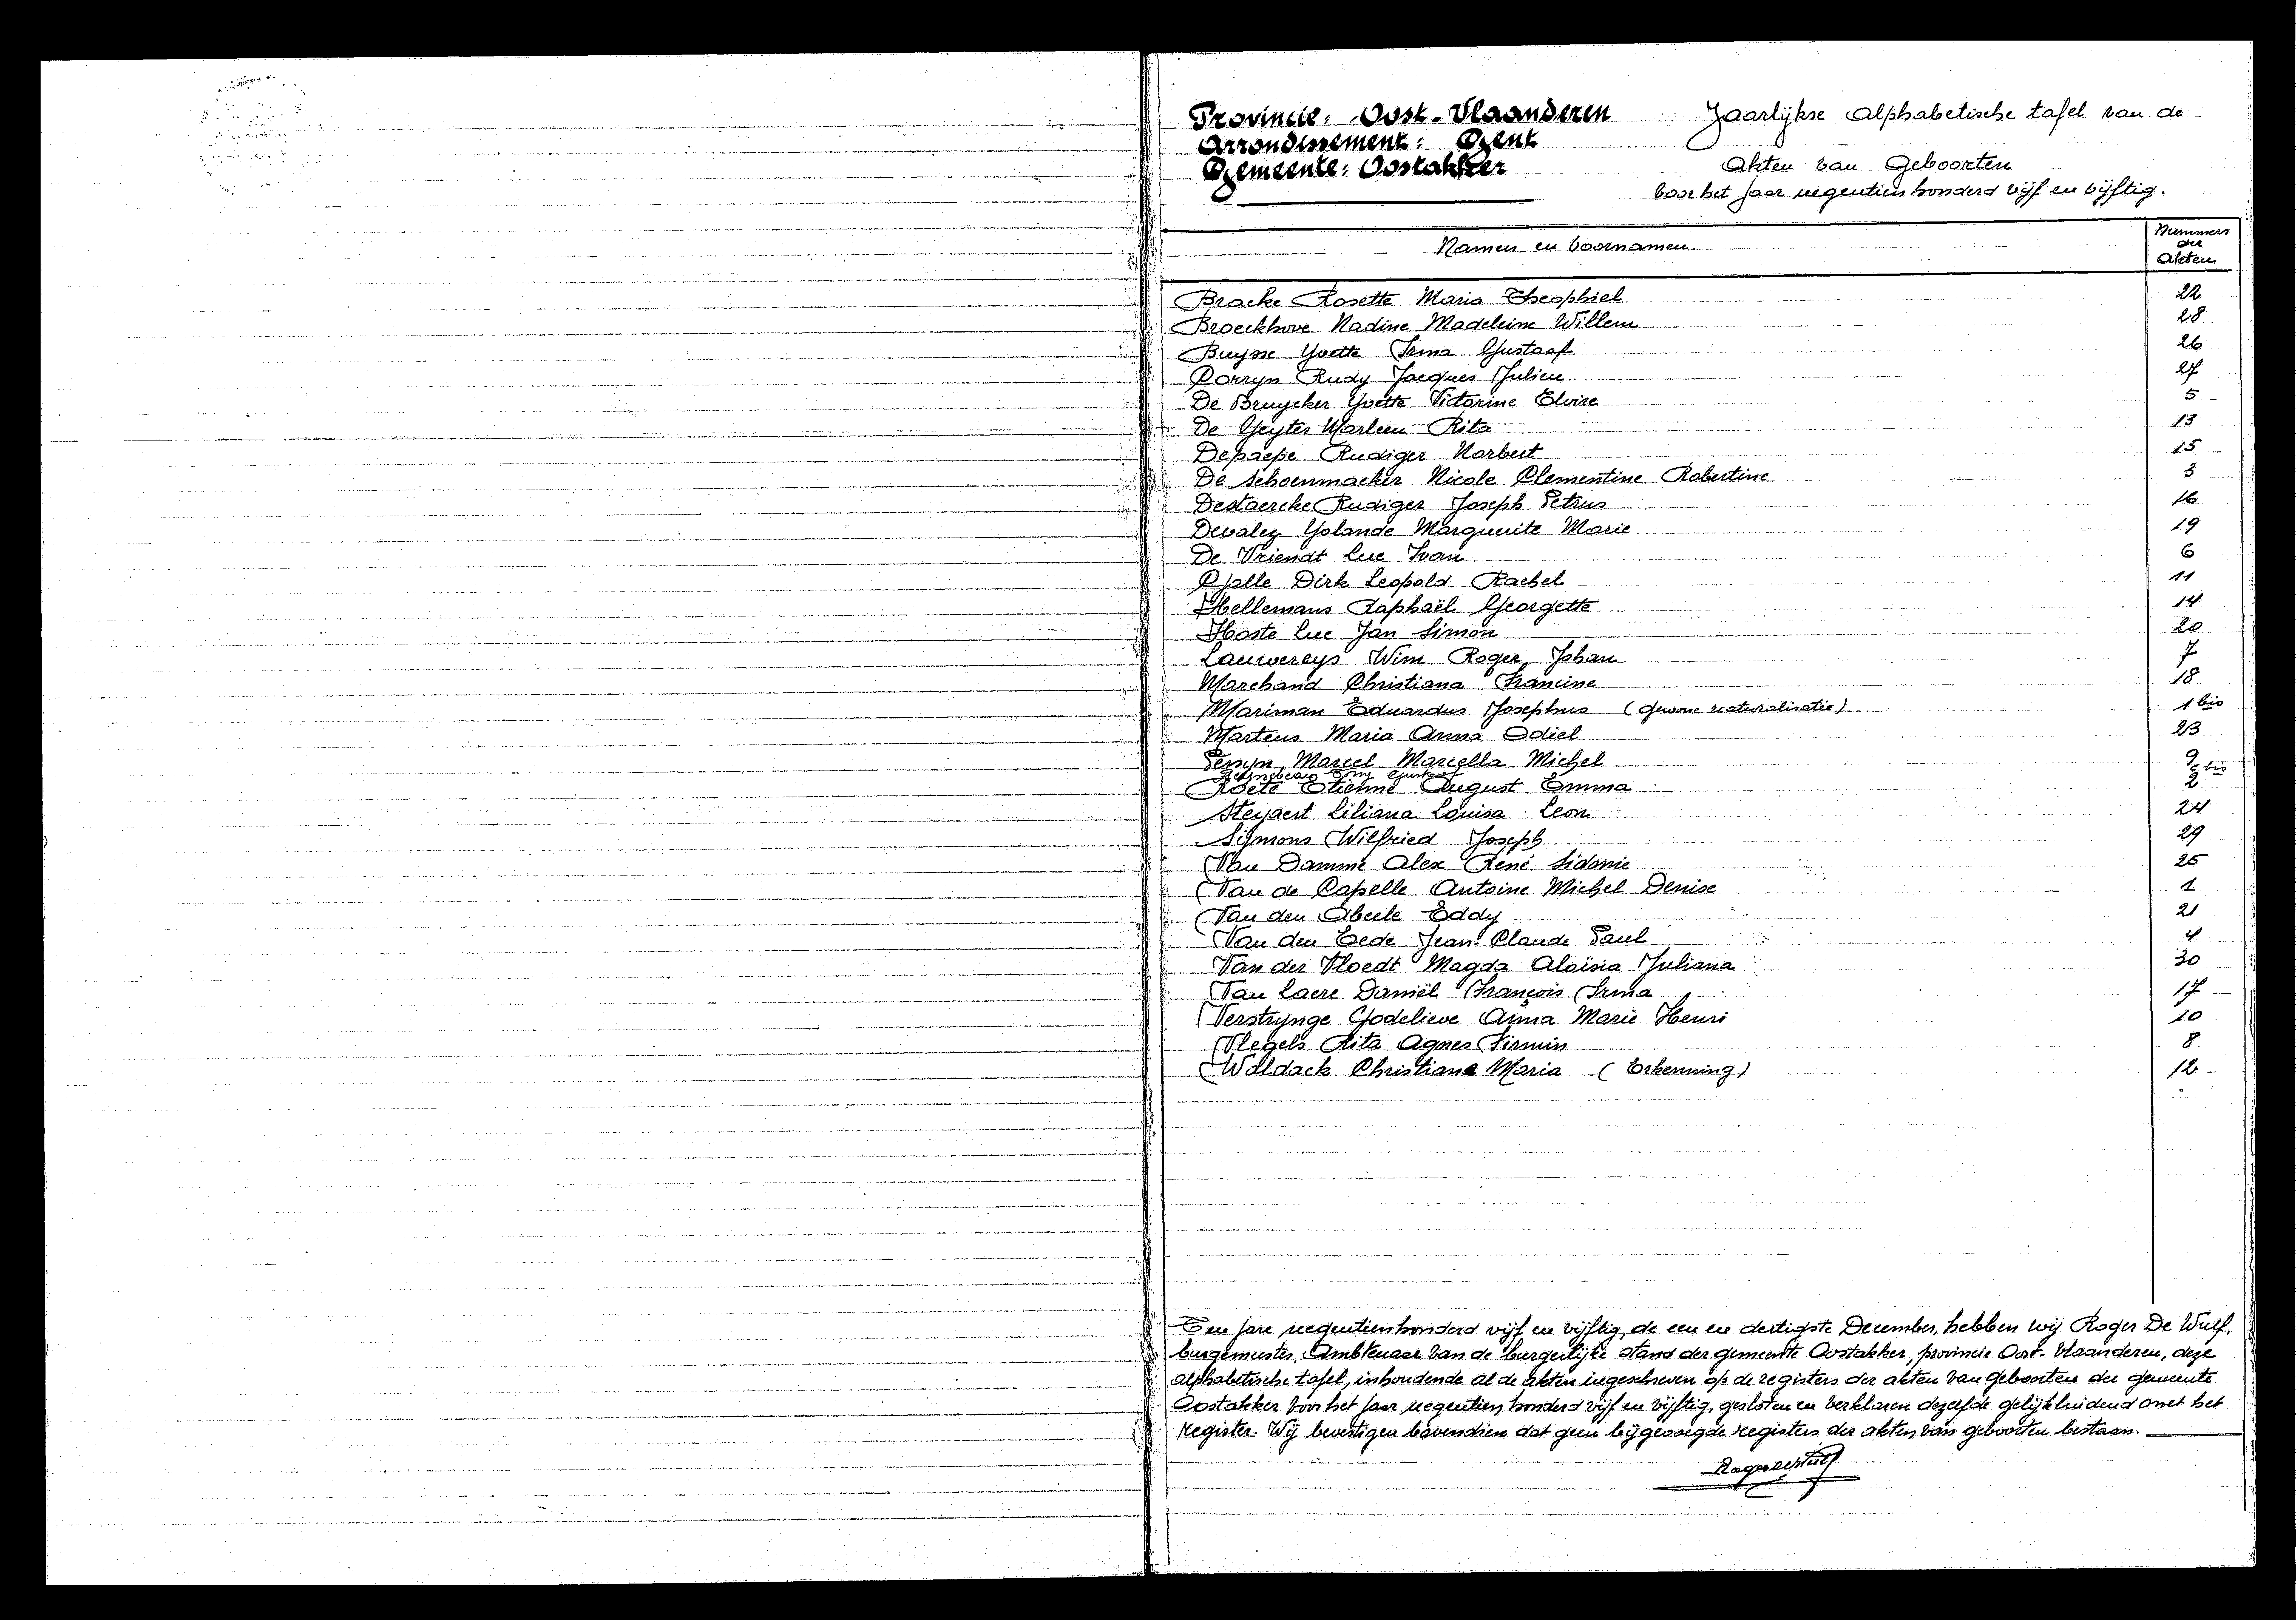 Provincie: Oost-Vlaanderen
Arrondissement: Gent
Gemeente: Oostakker
Jaarlijkse Alphabetische tafel van de
Akten van Geboorten
voor het jaar negentien honderd vijf en vijftig.
Namen en voornamen.
Nummers der Akten
Bracke Rosette Maria Theophiel 22
Broeckhove Nadine Madeleine Willem 28
Buysse Yvette Irma Gustaaf 26
Corryn Rudy Jacques Julien 27
De Bruycker Yvette Victorine Elvire 5
De Geyter Marleen Rita 13
Depaepe Rudiger Norbert 15
De Schoenmacker Nicole Clementine Robertine 3
Destaercke Rudiger Joseph Petrus 16
Devaley Yolande Marguerite Marie 19
De Vriendt Luc Ivan 6
Galle Dirk Leopold Rachel 11
Hellemans Raphaël Georgette 14
Hoste Luc Jan Simon 20
Lauwereys Wim Roger Johan 7
Marchand Christiana Francine 18
Mariman Eduardus Josephus (gewone naturalisatie) 1 bis
Martens Maria Anna Odiel 23
Persyn Marcel Marcella Michel 9
bis
Roete Etienne August Emma 2
Steyaert Liliana Louisa Leon 24
Symons Wilfried Joseph 29
Van Damme Alex René Sidonie 25
Van de Capelle Antoine Michel Denise 1
Van den Abeele Eddy 21
Van den Eede Jean-Claude Paul 4
Van der Vloedt Magda Aloisia Juliana 30
Van Laere Daniël François Irma 17
Verstrynge Godelieve Anna Marie Henri 10
Vlegels Rita Agnes Firmin 8
Waldack Christiane Maria (Erkenning) 12
Ten jare negentienhonderd vijf en vijftig, de een en dertigste December, hebben wij Roger De Wulf,
burgemeester, Ambtenaar van de burgerlijke stand der gemeente Oostakker, provincie Oost-Vlaanderen, deze
alphabetische tafel, inhoudende al de akten ingeschreven op de registers der akten van geboorten der gemeente
Oostakker voor het jaar negentien honderd vijf en vijftig, gesloten en verklaren dezelfde gelijkluidend met het
register. Wij bevestigen bovendien dat geen bijgevoegde registers der akten van geboorten bestaan.
Roger De Wulf